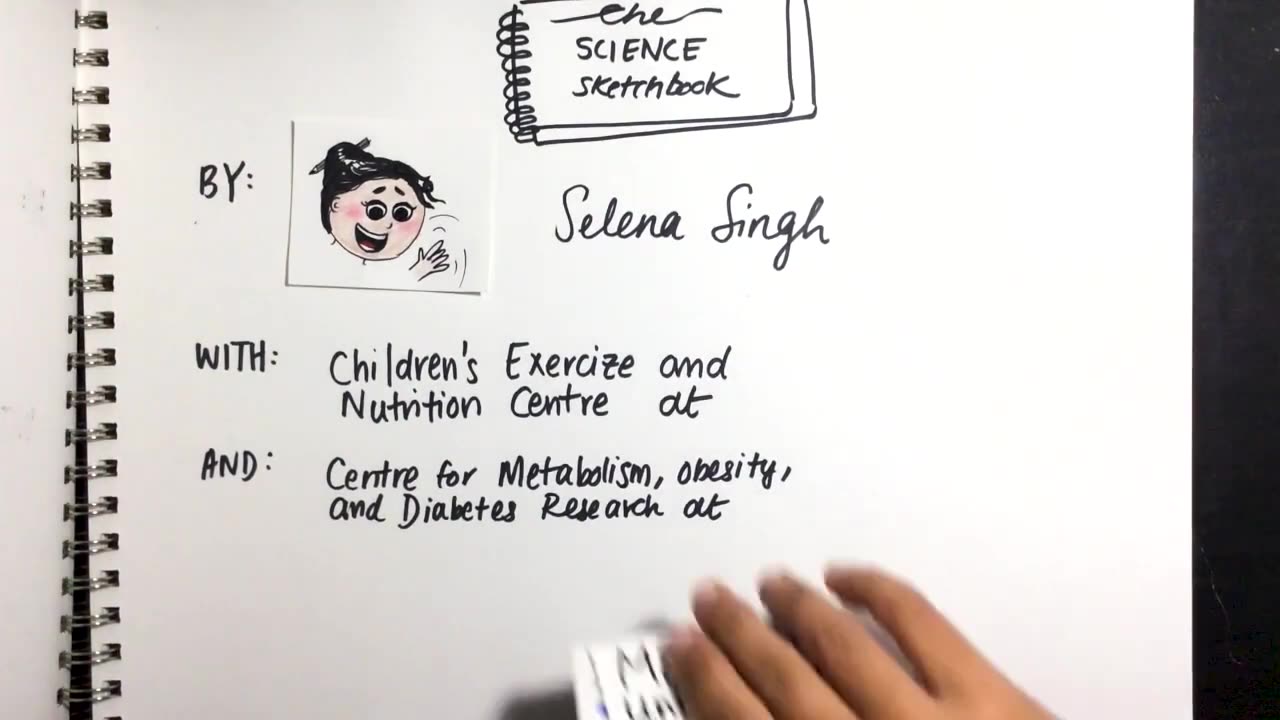 the
SCIENCE
sketchbook
BY:
Selena Singh
WITH: Children's Exercize and
Nutrition Centre at
AND: Centre for Metabolism, obesity,
and Diabetes Research at